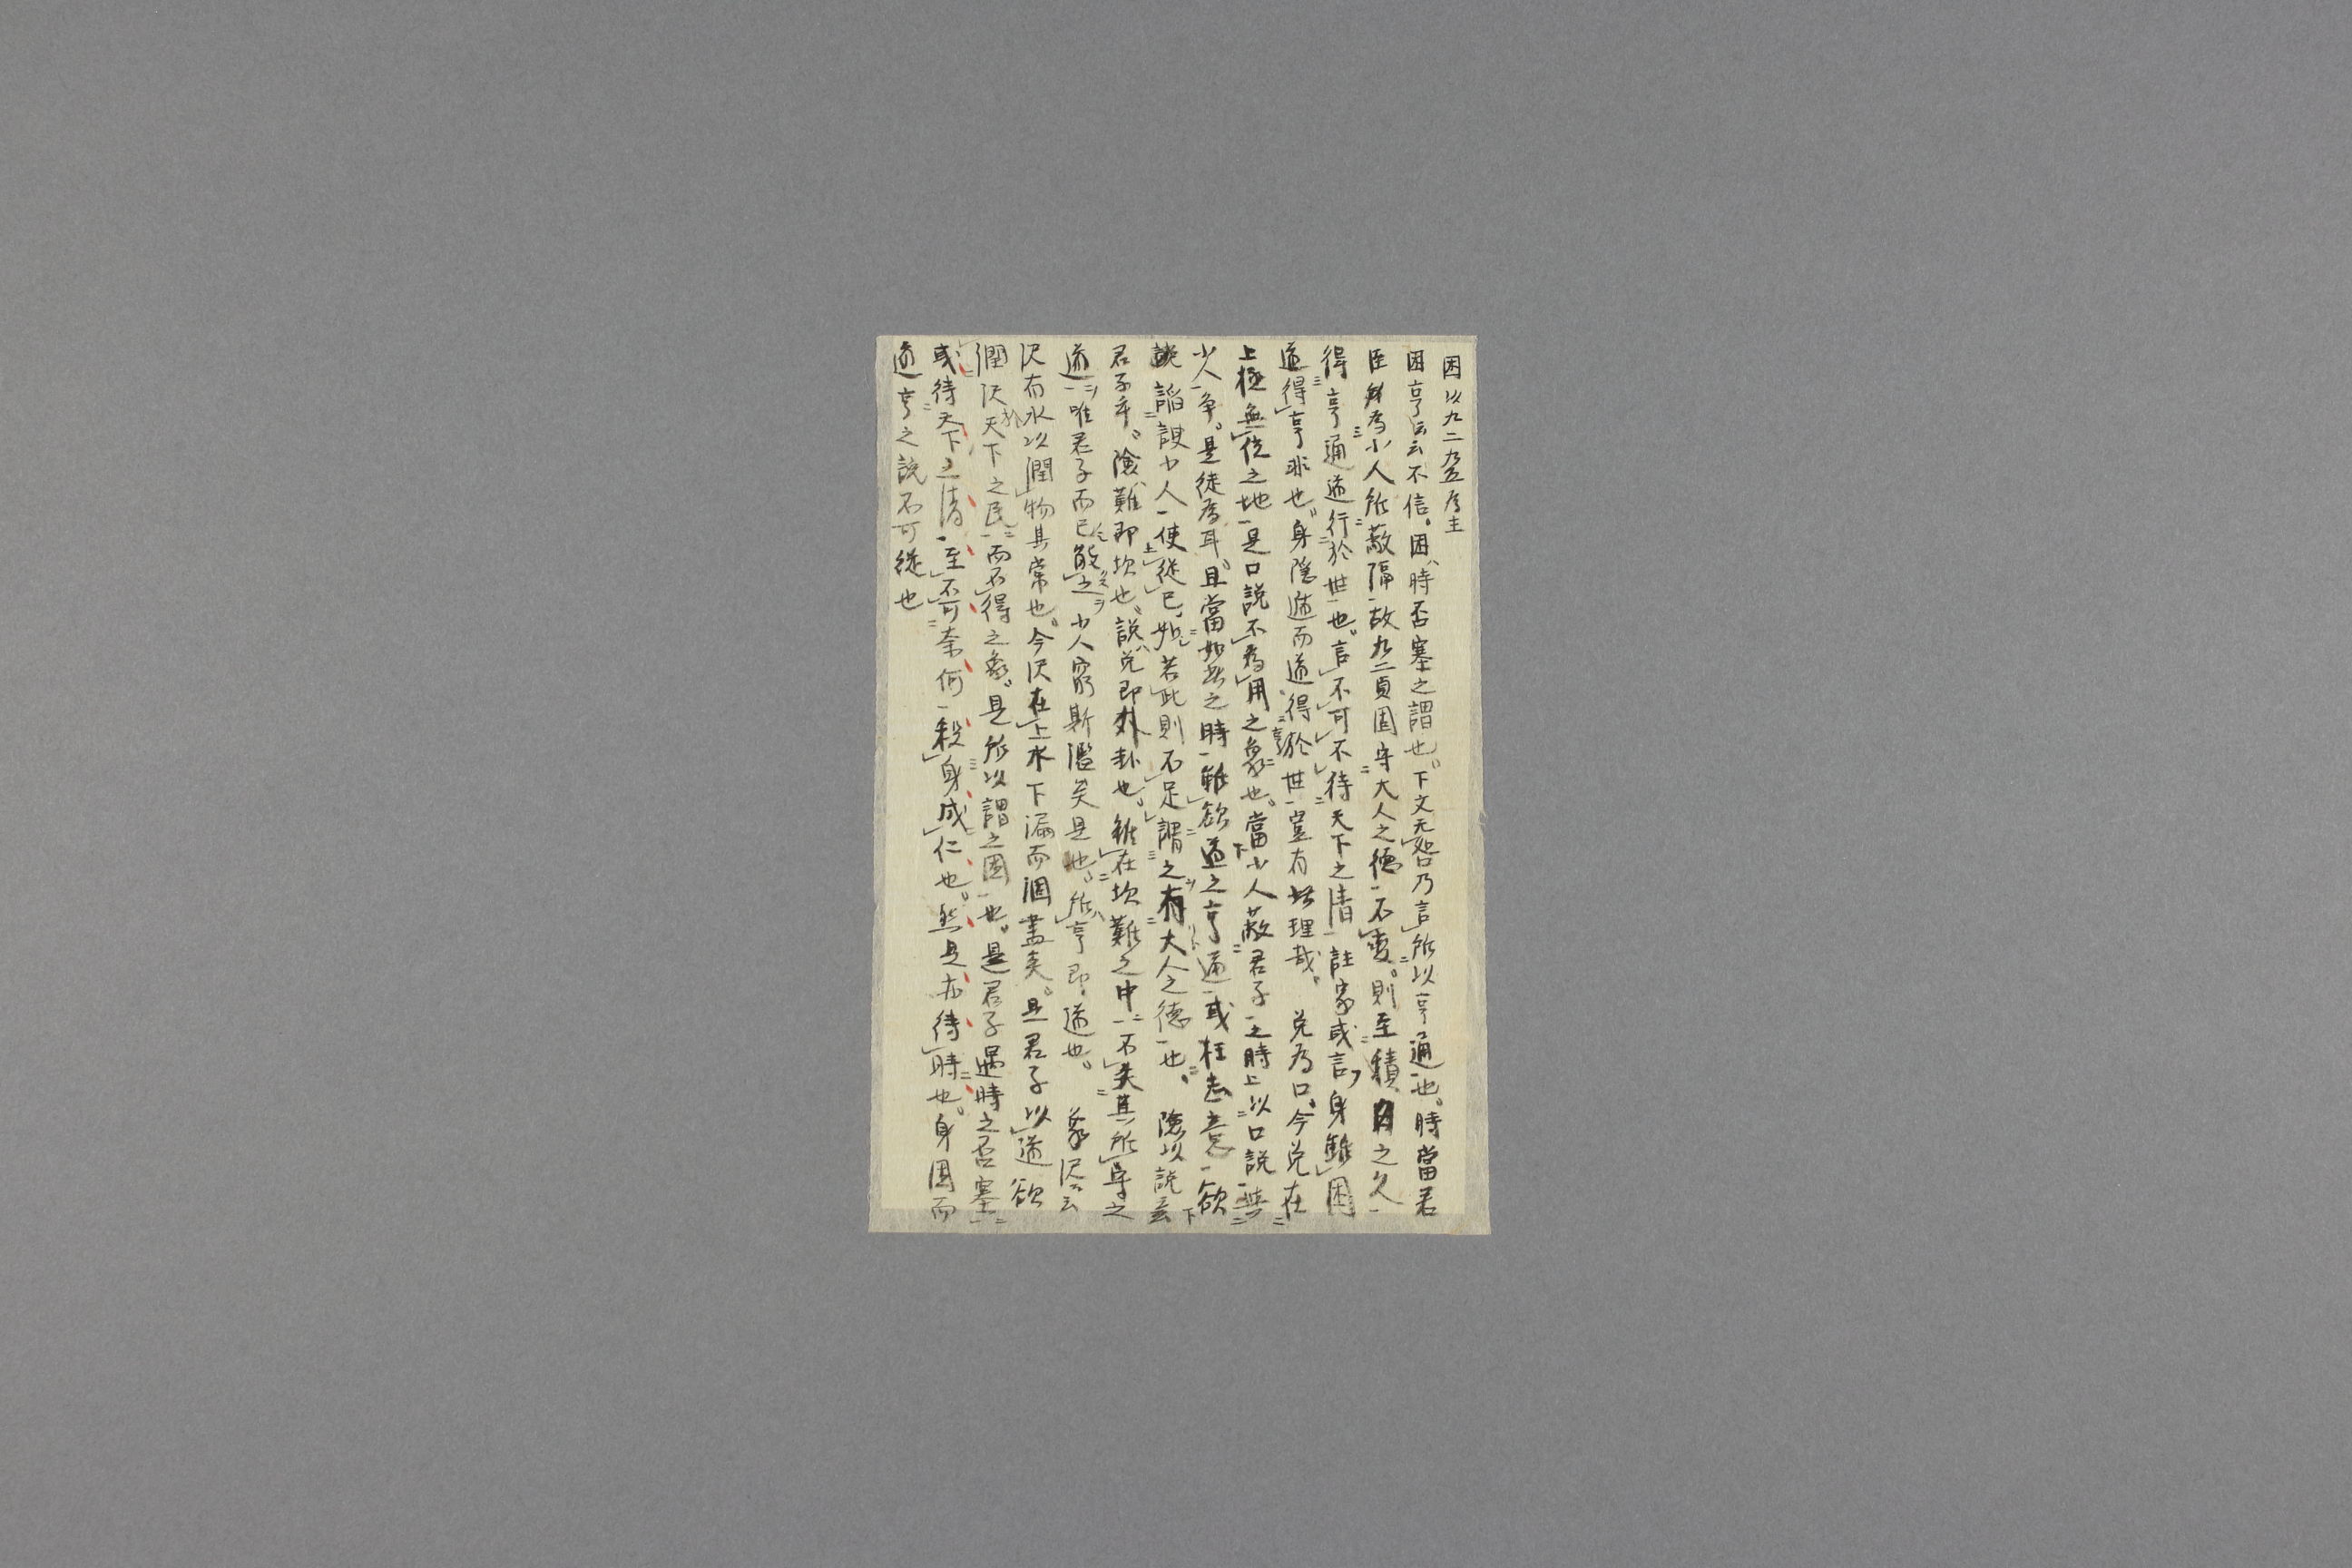 困以九二九五爲主
困亨云云不信。困、時否塞之謂也。下文无咎乃言所以亨通也。時當君
臣爲小人所蔽隔故九二貞固守大人之德不變。則至積日之久
得亨通道行於世也。言不可不待天下之清註家或言身雖困
道得亨非也。身隱遁而道得亨於世豈有此理哉。兌爲口。今兌在
上極無位之地是口說不爲用之象也。當小人蔽君子之時上以口說與
小人爭。是徒爲耳。且當如此之時雖欲道之亨通或枉志意欲
說諂諛小人使從已。如若此則不足謂之有大人之德也。險以說云
君子乎。險難即坎也。說兌即外卦也。雖在坎難之中不失其所亨之
道唯君子而已能之小人窮斯濫矣是也。所亨即道也。象澤云
沢有水以潤物其常也。今沢在上水下漏而涸盡矣。且君子以道欲
潤沢天下之民而不得之象。是所以謂之困也。是君子遇時之否塞
或待天下之清至不可奈何殺身成仁也。然是亦待時也。身困而
道亨之說不可從也